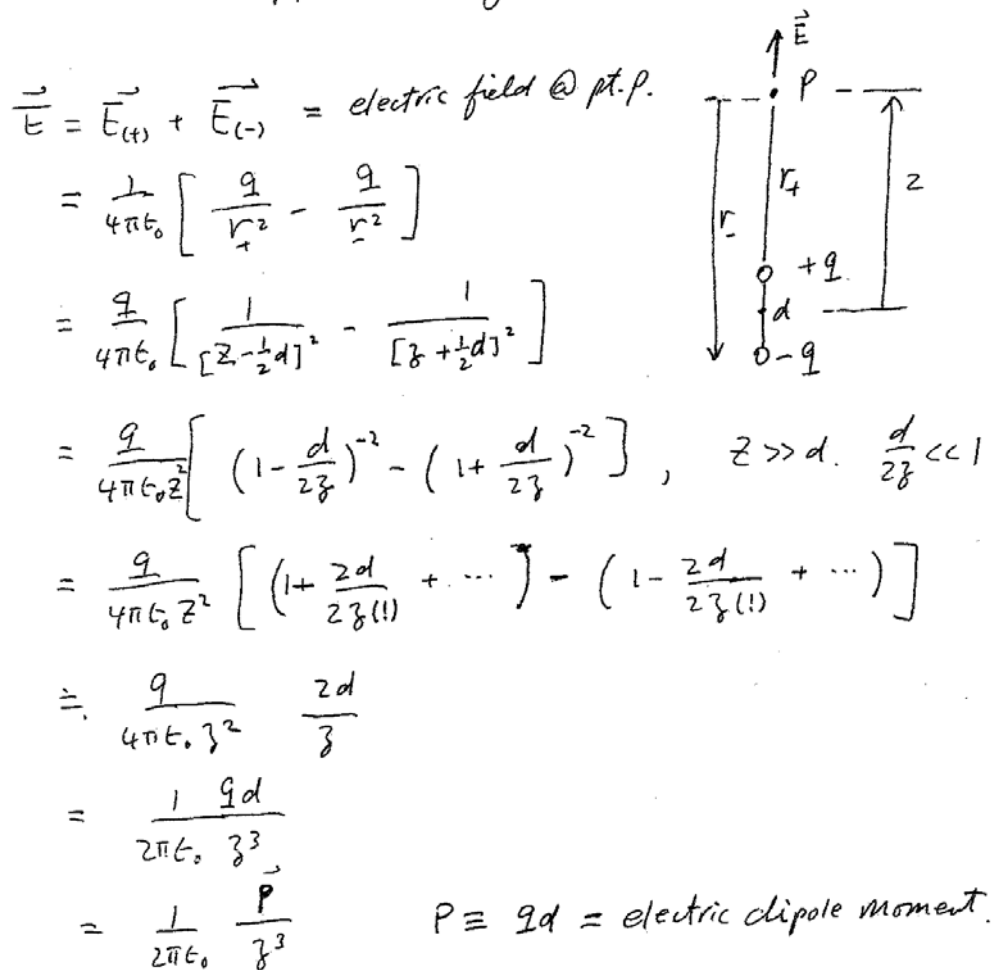 E⃗ = E⃗(+) + E⃗(-) = electric field @ pt.p.
= 1/4πε₀ [ q/r₊² - q/r₋² ]
= q/4πε₀ [ 1/[z-½d]² - 1/[z+½d]² ]
= q/4πε₀z² [ (1-d/2z)⁻² - (1+d/2z)⁻² ] , z>>d. d/2z <<1
= q/4πε₀z² [ (1+2d/2z(1!) + ...) - (1-2d/2z(1!) + ...) ]
≐ q/4πε₀z² 2d/z
= 1/2πε₀ qd/z³
= 1/2πε₀ p⃗/z³ P ≡ qd = electric dipole moment.
E⃗
P
r₊
z
r₋
+q
d
-q